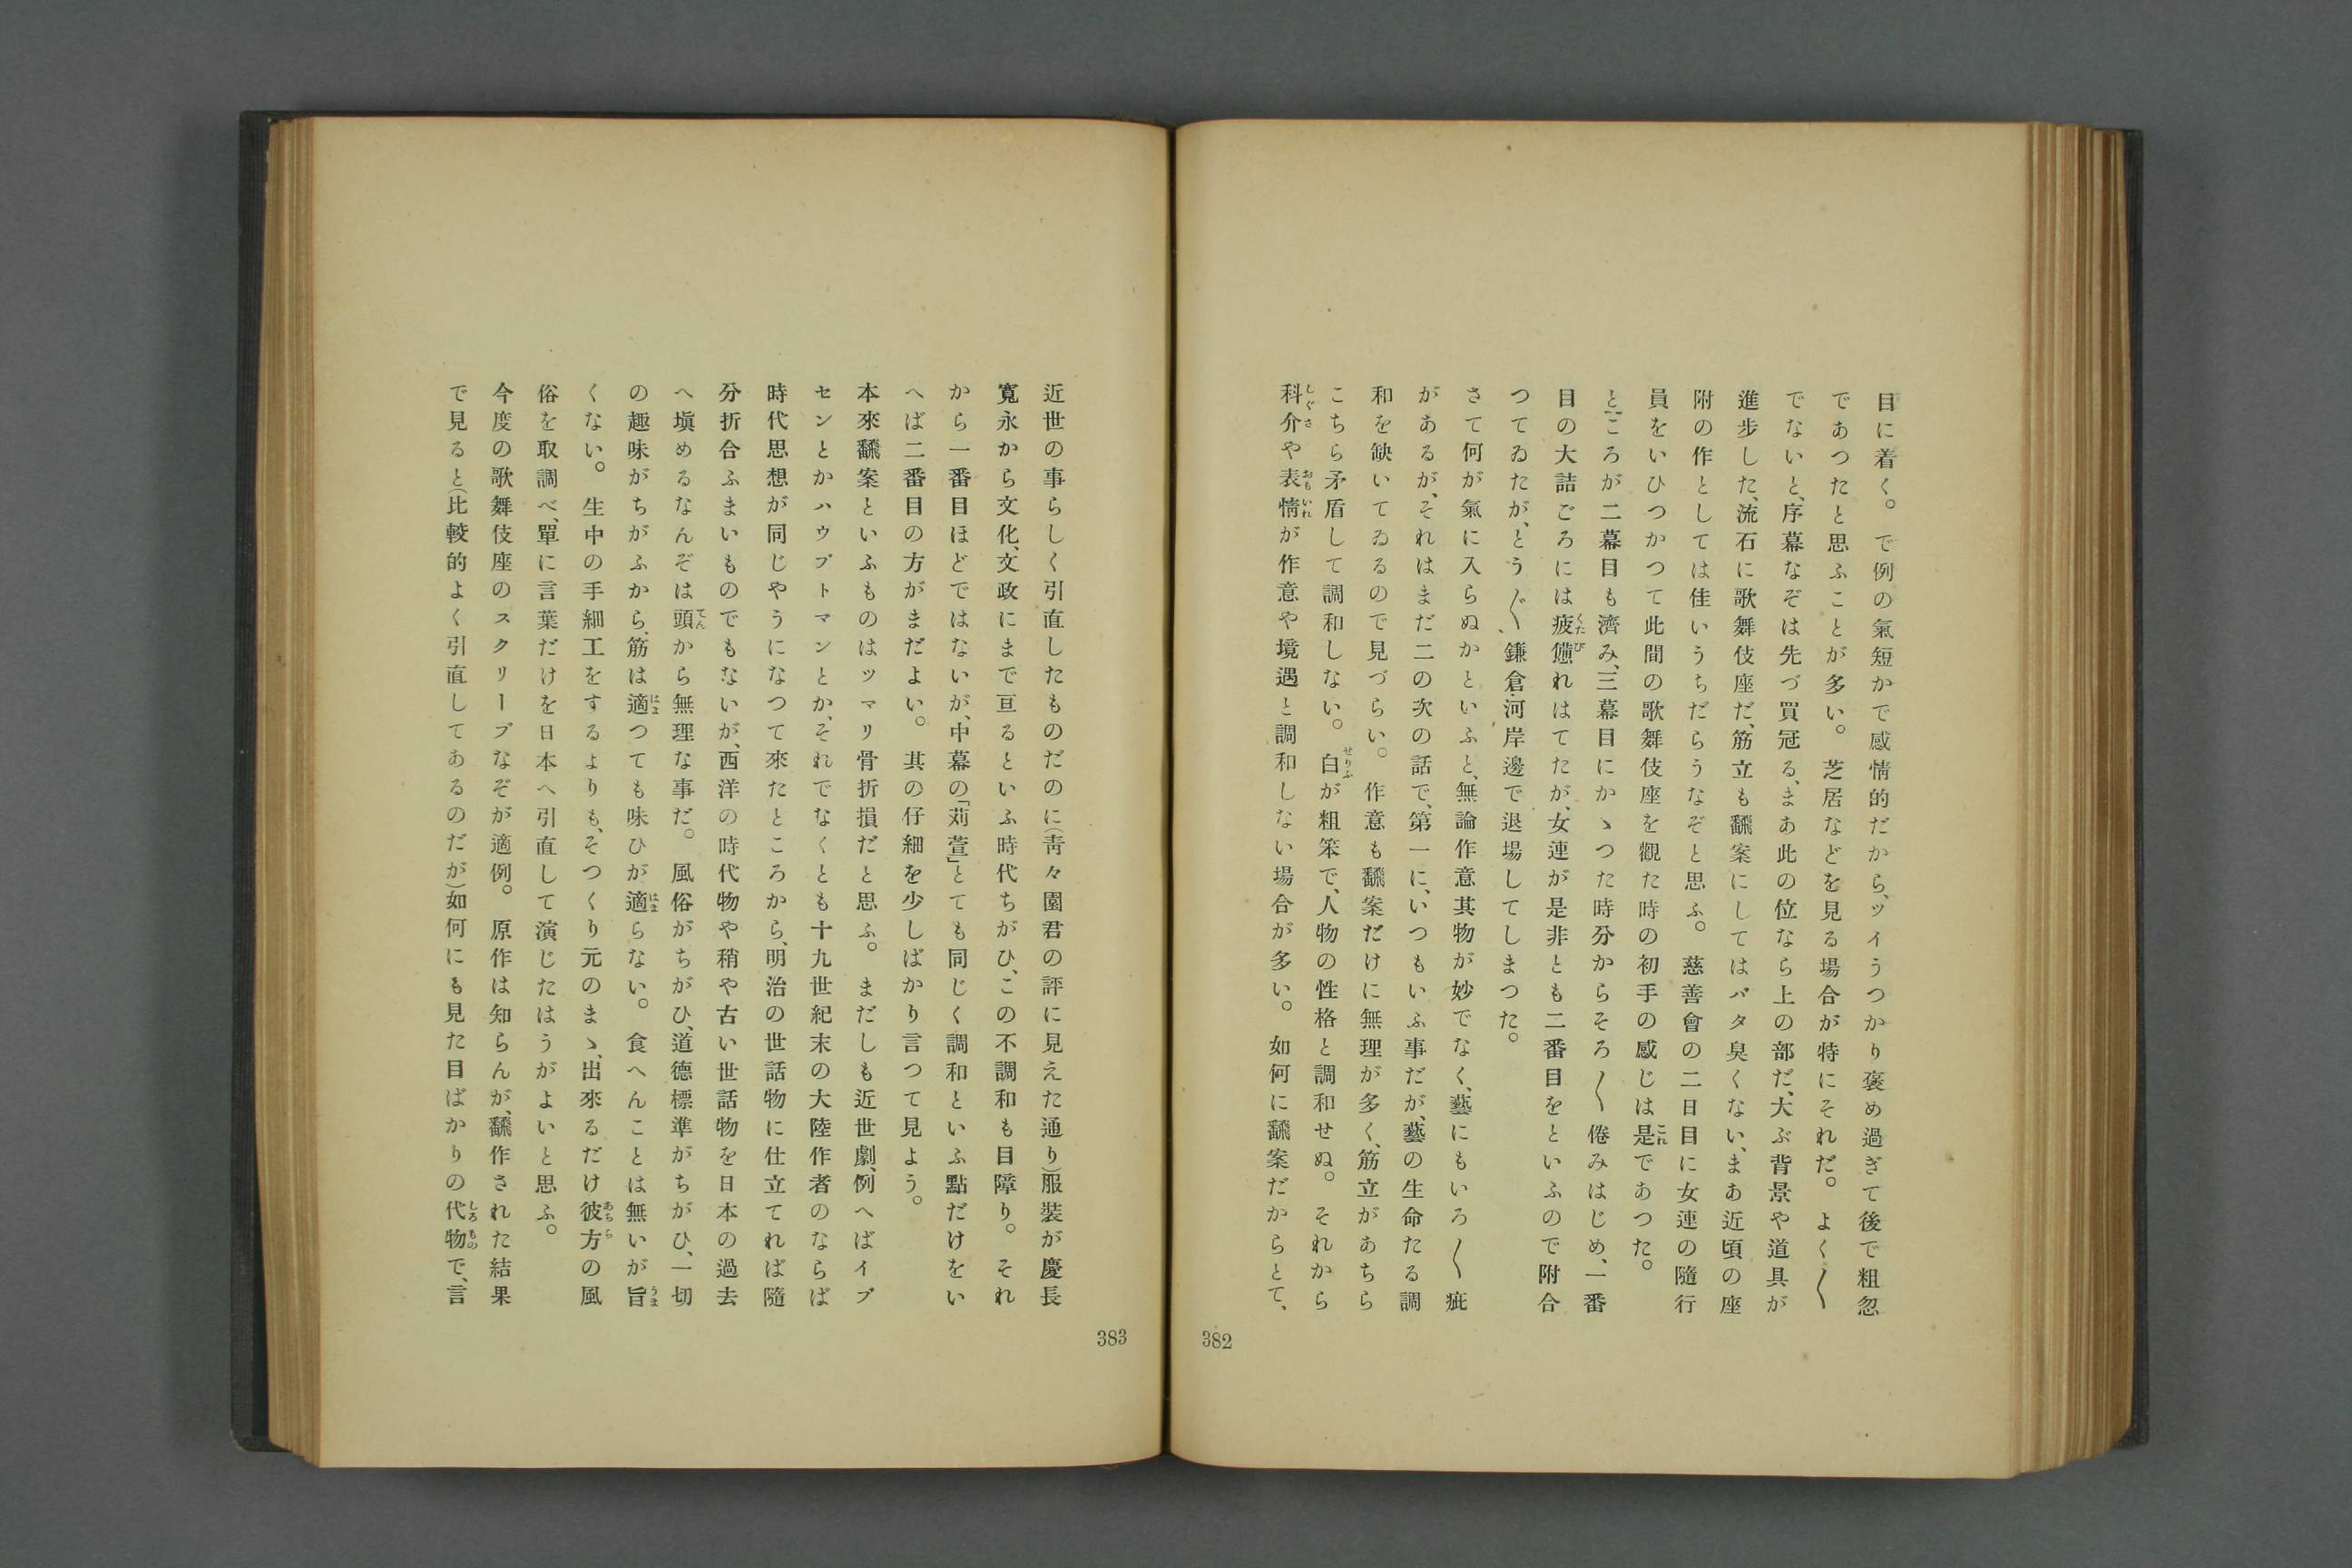 目に着く。で例の氣短かで感情的だから、ツイうつかり褒め過ぎて後で粗忽
であつたと思ふことが多い。芝居などを見る場合が特にそれだ。よく〳〵
でないと、序幕なぞは先づ買冠る、まあ此の位なら上の部だ、大ぶ背景や道具が
進歩した、流石に歌舞伎座だ、筋立も飜案にしてはバタ臭くない、まあ近頃の座
附の作としては佳いうちだらうなぞと思ふ。慈善會の二日目に女連の隨行
員をいひつかつて此間の歌舞伎座を觀た時の初手の感じは是であつた。
ところが二幕目も濟み、三幕目にかゝつた時分からそろ〳〵倦みはじめ、一番
目の大詰ごろには疲憊れはてたが、女連が是非とも二番目をといふので附合
つてゐたが、とう〴〵、鎌倉河岸邊で退場してしまつた。
さて何が氣に入らぬかといふと、無論作意其物が妙でなく、藝にもいろ〳〵疵
があるが、それはまだ二の次の話で、第一に、いつもいふ事だが、藝の生命たる調
和を缺いてゐるので見づらい。作意も飜案だけに無理が多く、筋立があちら
こちら矛盾して調和しない。白が粗笨で、人物の性格と調和せぬ。それから
科介や表情が作意や境遇と調和しない場合が多い。如何に飜案だからとて、
382
近世の事らしく引直したものだのに(靑々園君の評に見えた通り)服裝が慶長
寬永から文化、文政にまで亘るといふ時代ちがひ、この不調和も目障り。それ
から一番目ほどではないが、中幕の「苅萱」とても同じく調和といふ點だけをい
へば二番目の方がまだよい。其の仔細を少しばかり言つて見よう。
本來飜案といふものはツマリ骨折損だと思ふ。まだしも近世劇、例へばイブ
センとかハウプトマンとか、それでなくとも十九世紀末の大陸作者のならば
時代思想が同じやうになつて來たところから、明治の世話物に仕立てれば隨
分折合ふまいものでもないが、西洋の時代物や稍や古い世話物を日本の過去
へ塡めるなんぞは頭から無理な事だ。風俗がちがひ、道德標準がちがひ、一切
の趣味がちがふから、筋は適つても味ひが適らない。食へんことは無いが旨
くない。生中の手細工をするよりも、そつくり元のまゝ、出來るだけ彼方の風
俗を取調べ、單に言葉だけを日本へ引直して演じたはうがよいと思ふ。
今度の歌舞伎座のスクリーブなぞが適例。原作は知らんが、飜作された結果
で見ると(比較的よく引直してあるのだが)如何にも見た目ばかりの代物で、言
383